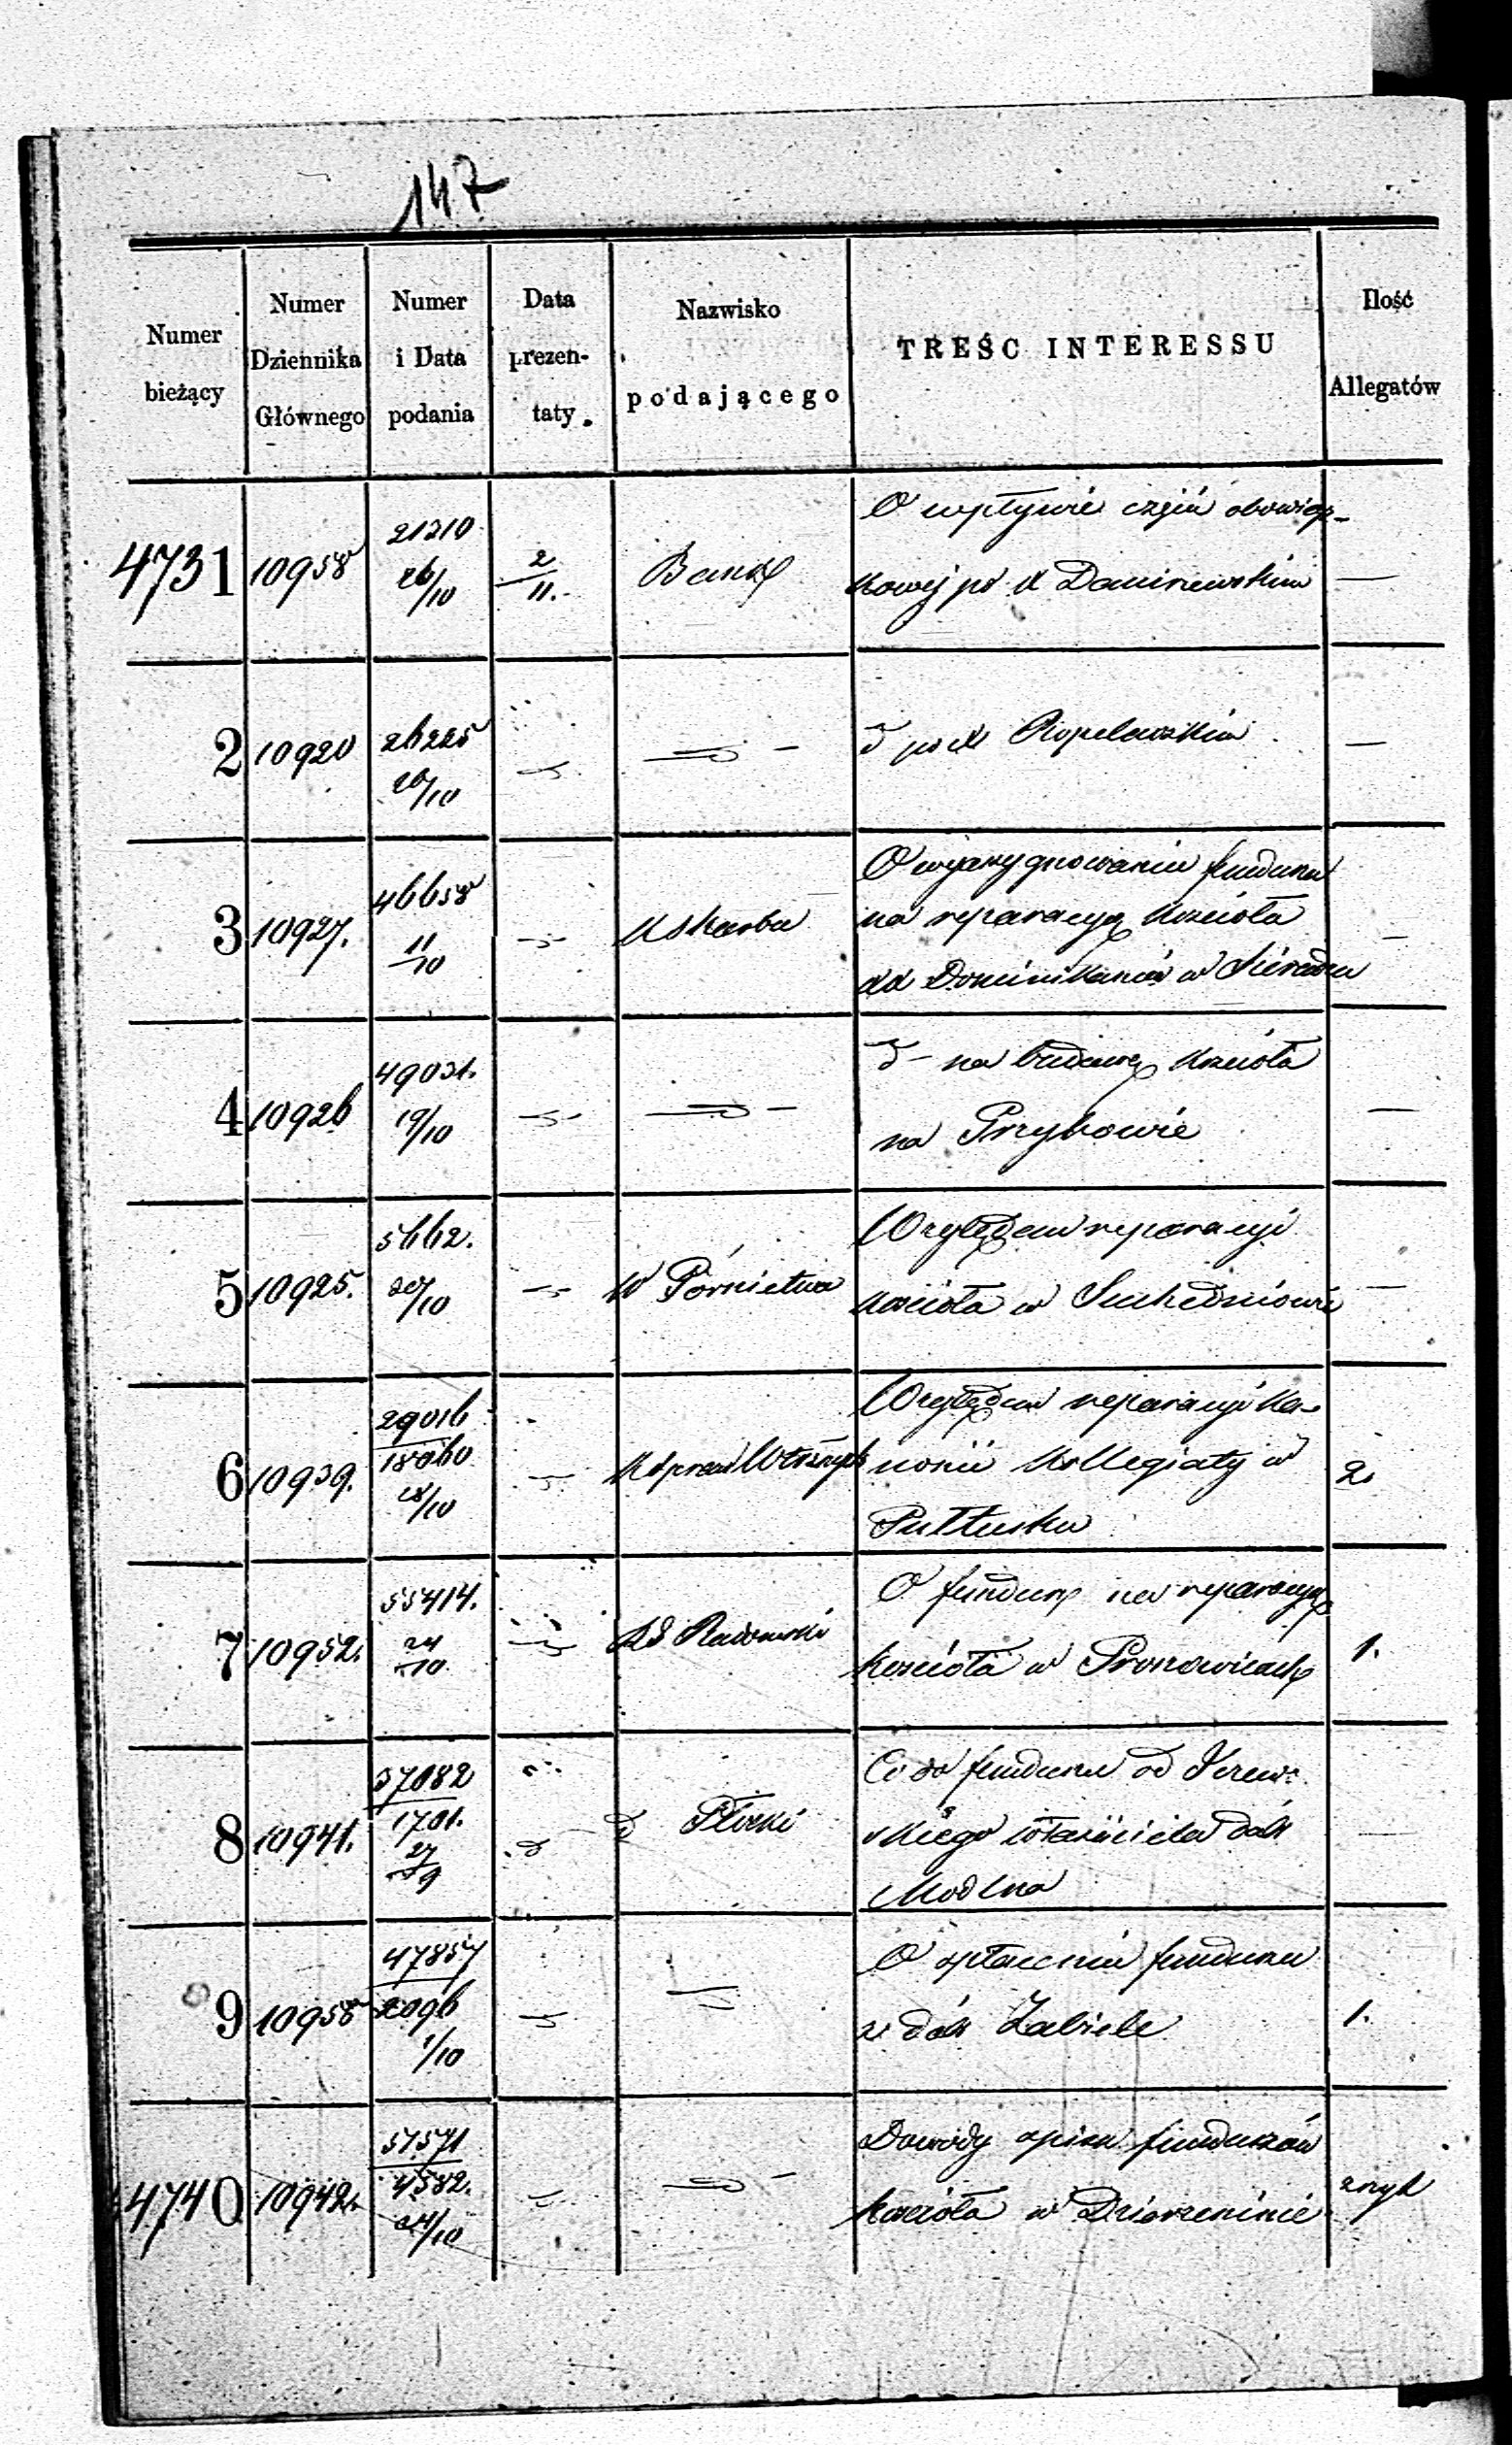 147
Numer bieżący
Numer Dziennika Głównego
Numer i Data podania
Data prezentaty.
Nazwisko podającego
TREŚĆ INTERESSU
Ilość Allegatów
4731 10958 21210 26/10 2/11. Bank
O wpływie częśći obowiąz-
kowej po X —
2 10920 26225 26/10 — —
d° po X —
3 10927. 46658 11/10 — K Skarbu
O wyasygnowaniu funduszu
na reparacyą kościoła
XX Dominikanów w Sieradzu —
4 10926 49031. 19/10 — —
d° na budowę kościoła
na Grzybowie —
5 10925. 5662. 20/10 — W Górnictwa
Względem reparacyi
kościoła w Suchedniowie —
6 10939. 29016 18060 18/10 —
Względem reparacyi Ka-
nonii Kollegiaty w
Pułtusku 2.
7 10952. 55414. 24/10 — Radomski
O fundusz na reparacyą
kościoła w 1.
8 10941. 37082 1701. 27/9 d° Płocki
Co do funduszu od
skiego właściciela dóbr
Modlna —
9 10958 47857 2096 1/10 — —
O opłacenie funduszu
z dóbr Zabiele 1.
4740 10942. 57571 4582. 24/10 — —
Dowody opisu funduszów
kościoła w Dzierzeninie zszyt